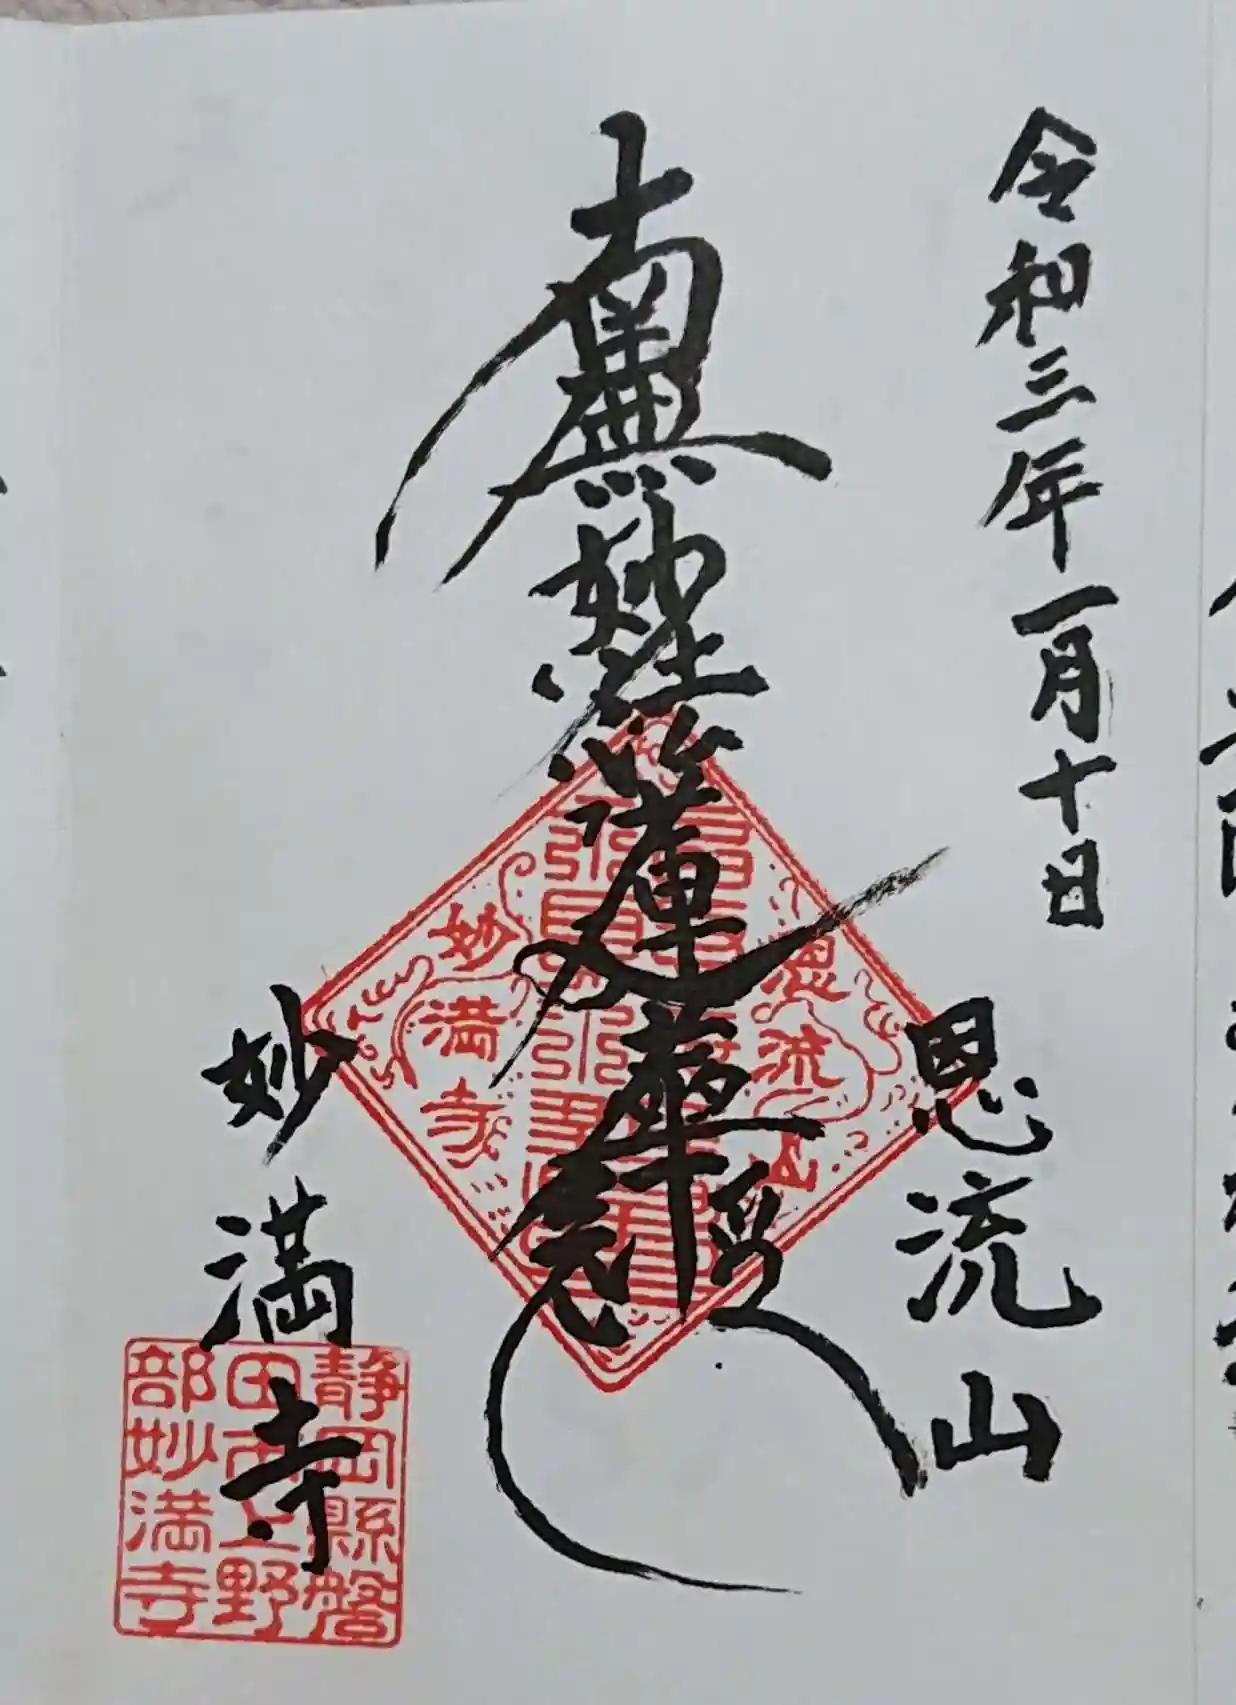 令和三年一月十日
恩流山
南無妙法蓮華経
恩流山
妙満寺
妙満寺
静岡縣磐
田西上野
部妙満寺